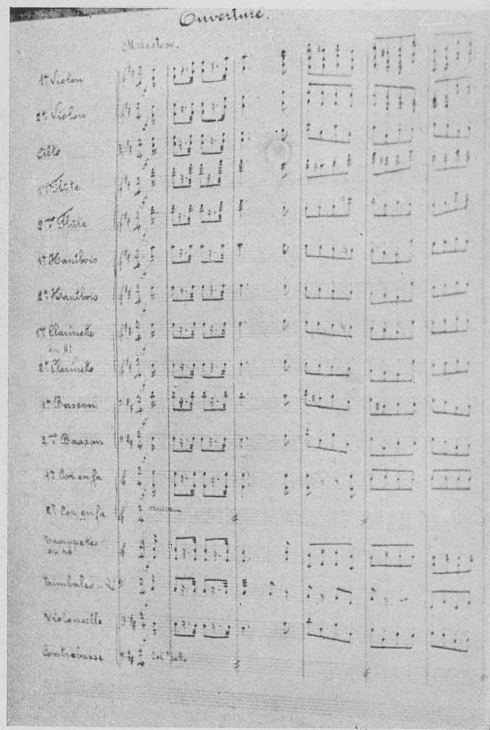 Ouverture.
Maestoso.
1er Violon
2e Violon
Alto
1re Flûte
2me Flûte
1r Hautbois
2e Hautbois
1re Clarinette
2e Clarinette
1er Basson
2me Basson
1r Cor en fa
2e Cor en fa
Trompettes
en ré
Timbales
Violoncelle
Contrebasse